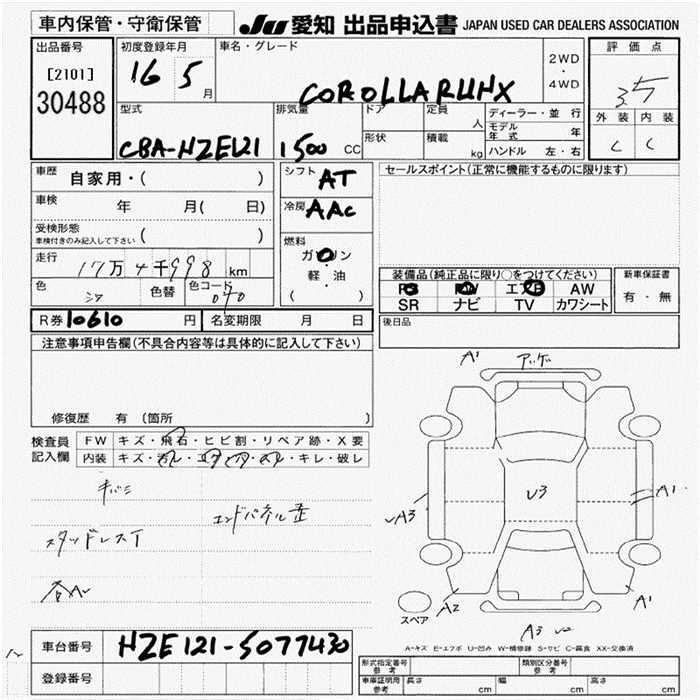 車内保管・守衛保管
JU 愛知 出品申込書 JAPAN USED CAR DEALERS ASSOCIATION
出品番号
[2101]
30488
初度登録年月
16 5 月
車名・グレード
COROLLA RUNX
2WD
・
4WD
評価点
3.5
外装 内装
C C
型式
CBA-NZE121
排気量
1500 CC
ドア
形状
定員 人
積載 kg
ディーラー・並行
モデル年式 年
ハンドル 左・右
車歴 自家用・( )
車検 年 月( 日)
受検形態
車検付きのみ記入して下さい ( )
走行 17万4千998 km
色 シロ 色替 色コード 040
シフト AT
冷房 AAC
燃料
ガソリン
・
軽・油
( )
セールスポイント(正常に機能するものに限ります)
装備品(純正品に限り○をつけてください)
PS PW エアB AW
SR ナビ TV カワシート
新車保証書
有・無
R券 10610 円 名変期限 月 日
後日品
注意事項申告欄(不具合内容等は具体的に記入して下さい)
修復歴 有 (箇所
検査員記入欄
FW キズ・飛石・ヒビ割・リペア跡・X要
内装 キズ・汚レ・コゲ・穴・スレ・キレ・破レ
キバミ
エンドパネル歪
スタッドレスT
A1
U3
A3
A1
A2
A1
A3
スペア
A-キズ E-エクボ U-凹み W-補修跡 S-サビ C-腐食 XX-交換済
車台番号 NZE121-5077430
登録番号
形式指定番号 参考
類別区分番号 参考
車庫証明用 参考 長さ cm 幅 cm 高さ cm